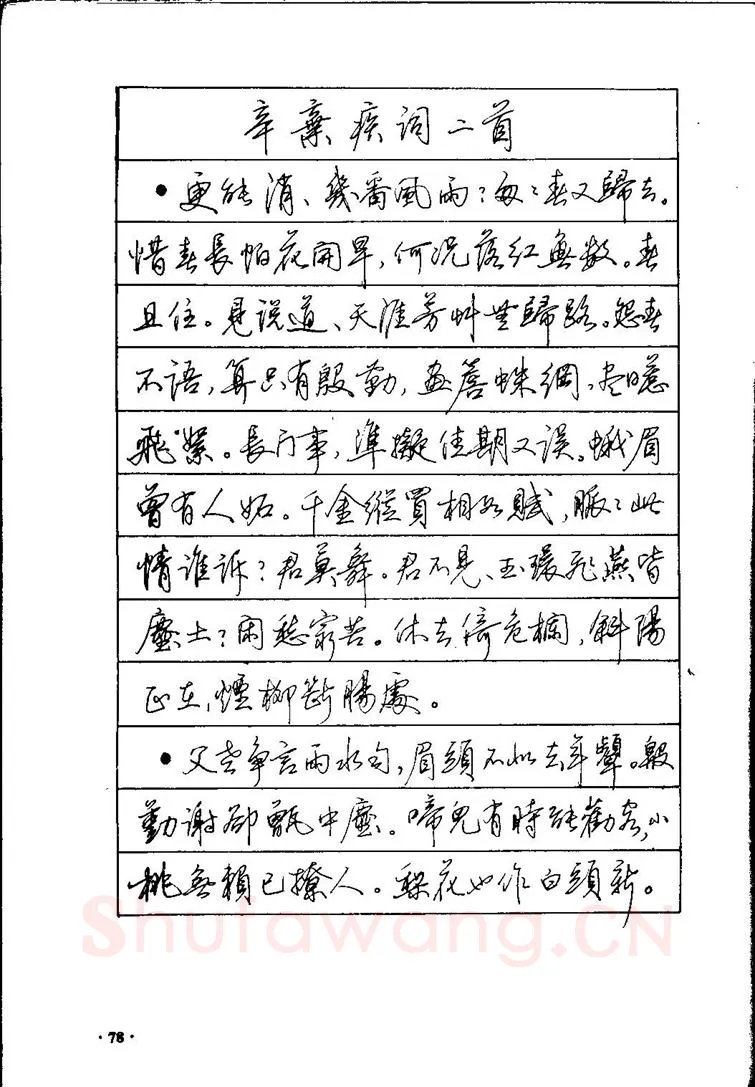 辛棄疾词二首
•更能消、幾番風雨?匆匆春又歸去。
惜春長怕花開早,何况落红無数。春
且住。見说道、天涯芳艸無歸路。怨春
不语,算只有殷勤,畫簷蛛網,盡日惹
飛絮。長门事,準擬佳期又误。蛾眉
曾有人妬。千金縱買相如賦,脈脈此
情谁诉?君莫舞。君不見、玉環飛燕皆
塵土?闲愁最苦。休去倚危欄,斜陽
正在,煙柳斷腸處。
•父老争言雨水匀,眉頭不似去年顰。殷
勤谢卻甑中塵。啼鸟有時能勸客,小
桃無賴已撩人。梨花也作白頭新。
Shufawang.CN
·78·